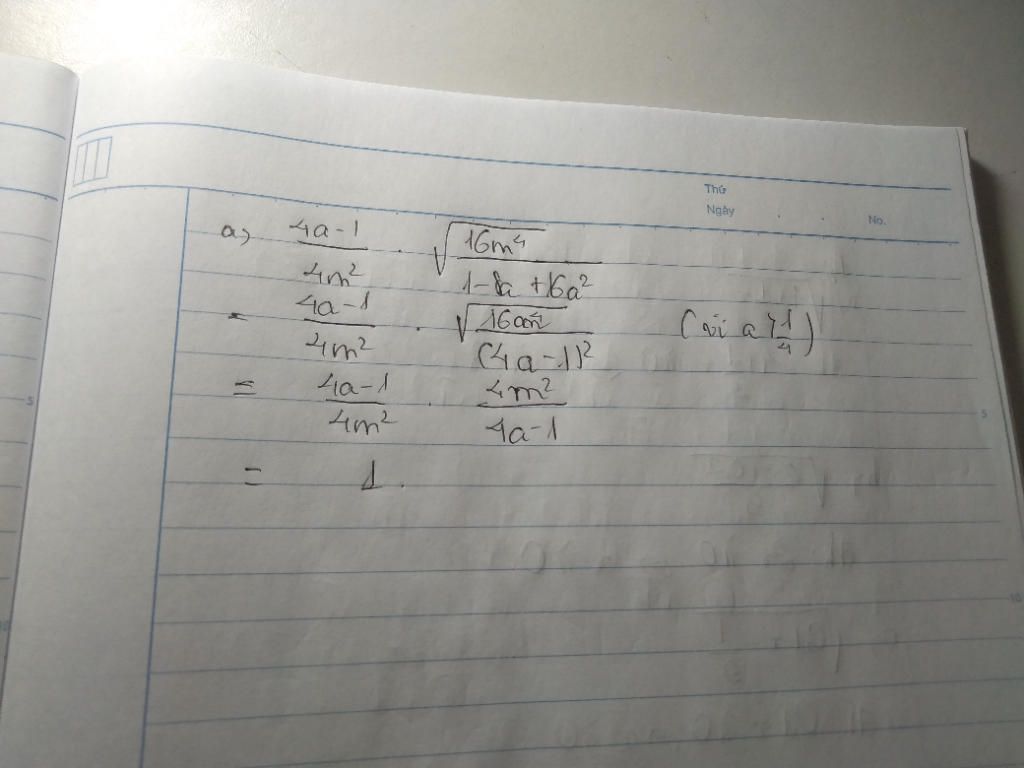 Thứ
Ngày . . No.
a) \frac{4a-1}{4m^2} . \sqrt{\frac{16m^4}{1-8a+16a^2}}
= \frac{4a-1}{4m^2} . \sqrt{\frac{16m^4}{(4a-1)^2}} (vì a > \frac{1}{4})
= \frac{4a-1}{4m^2} . \frac{4m^2}{4a-1}
= 1.
5
5
10